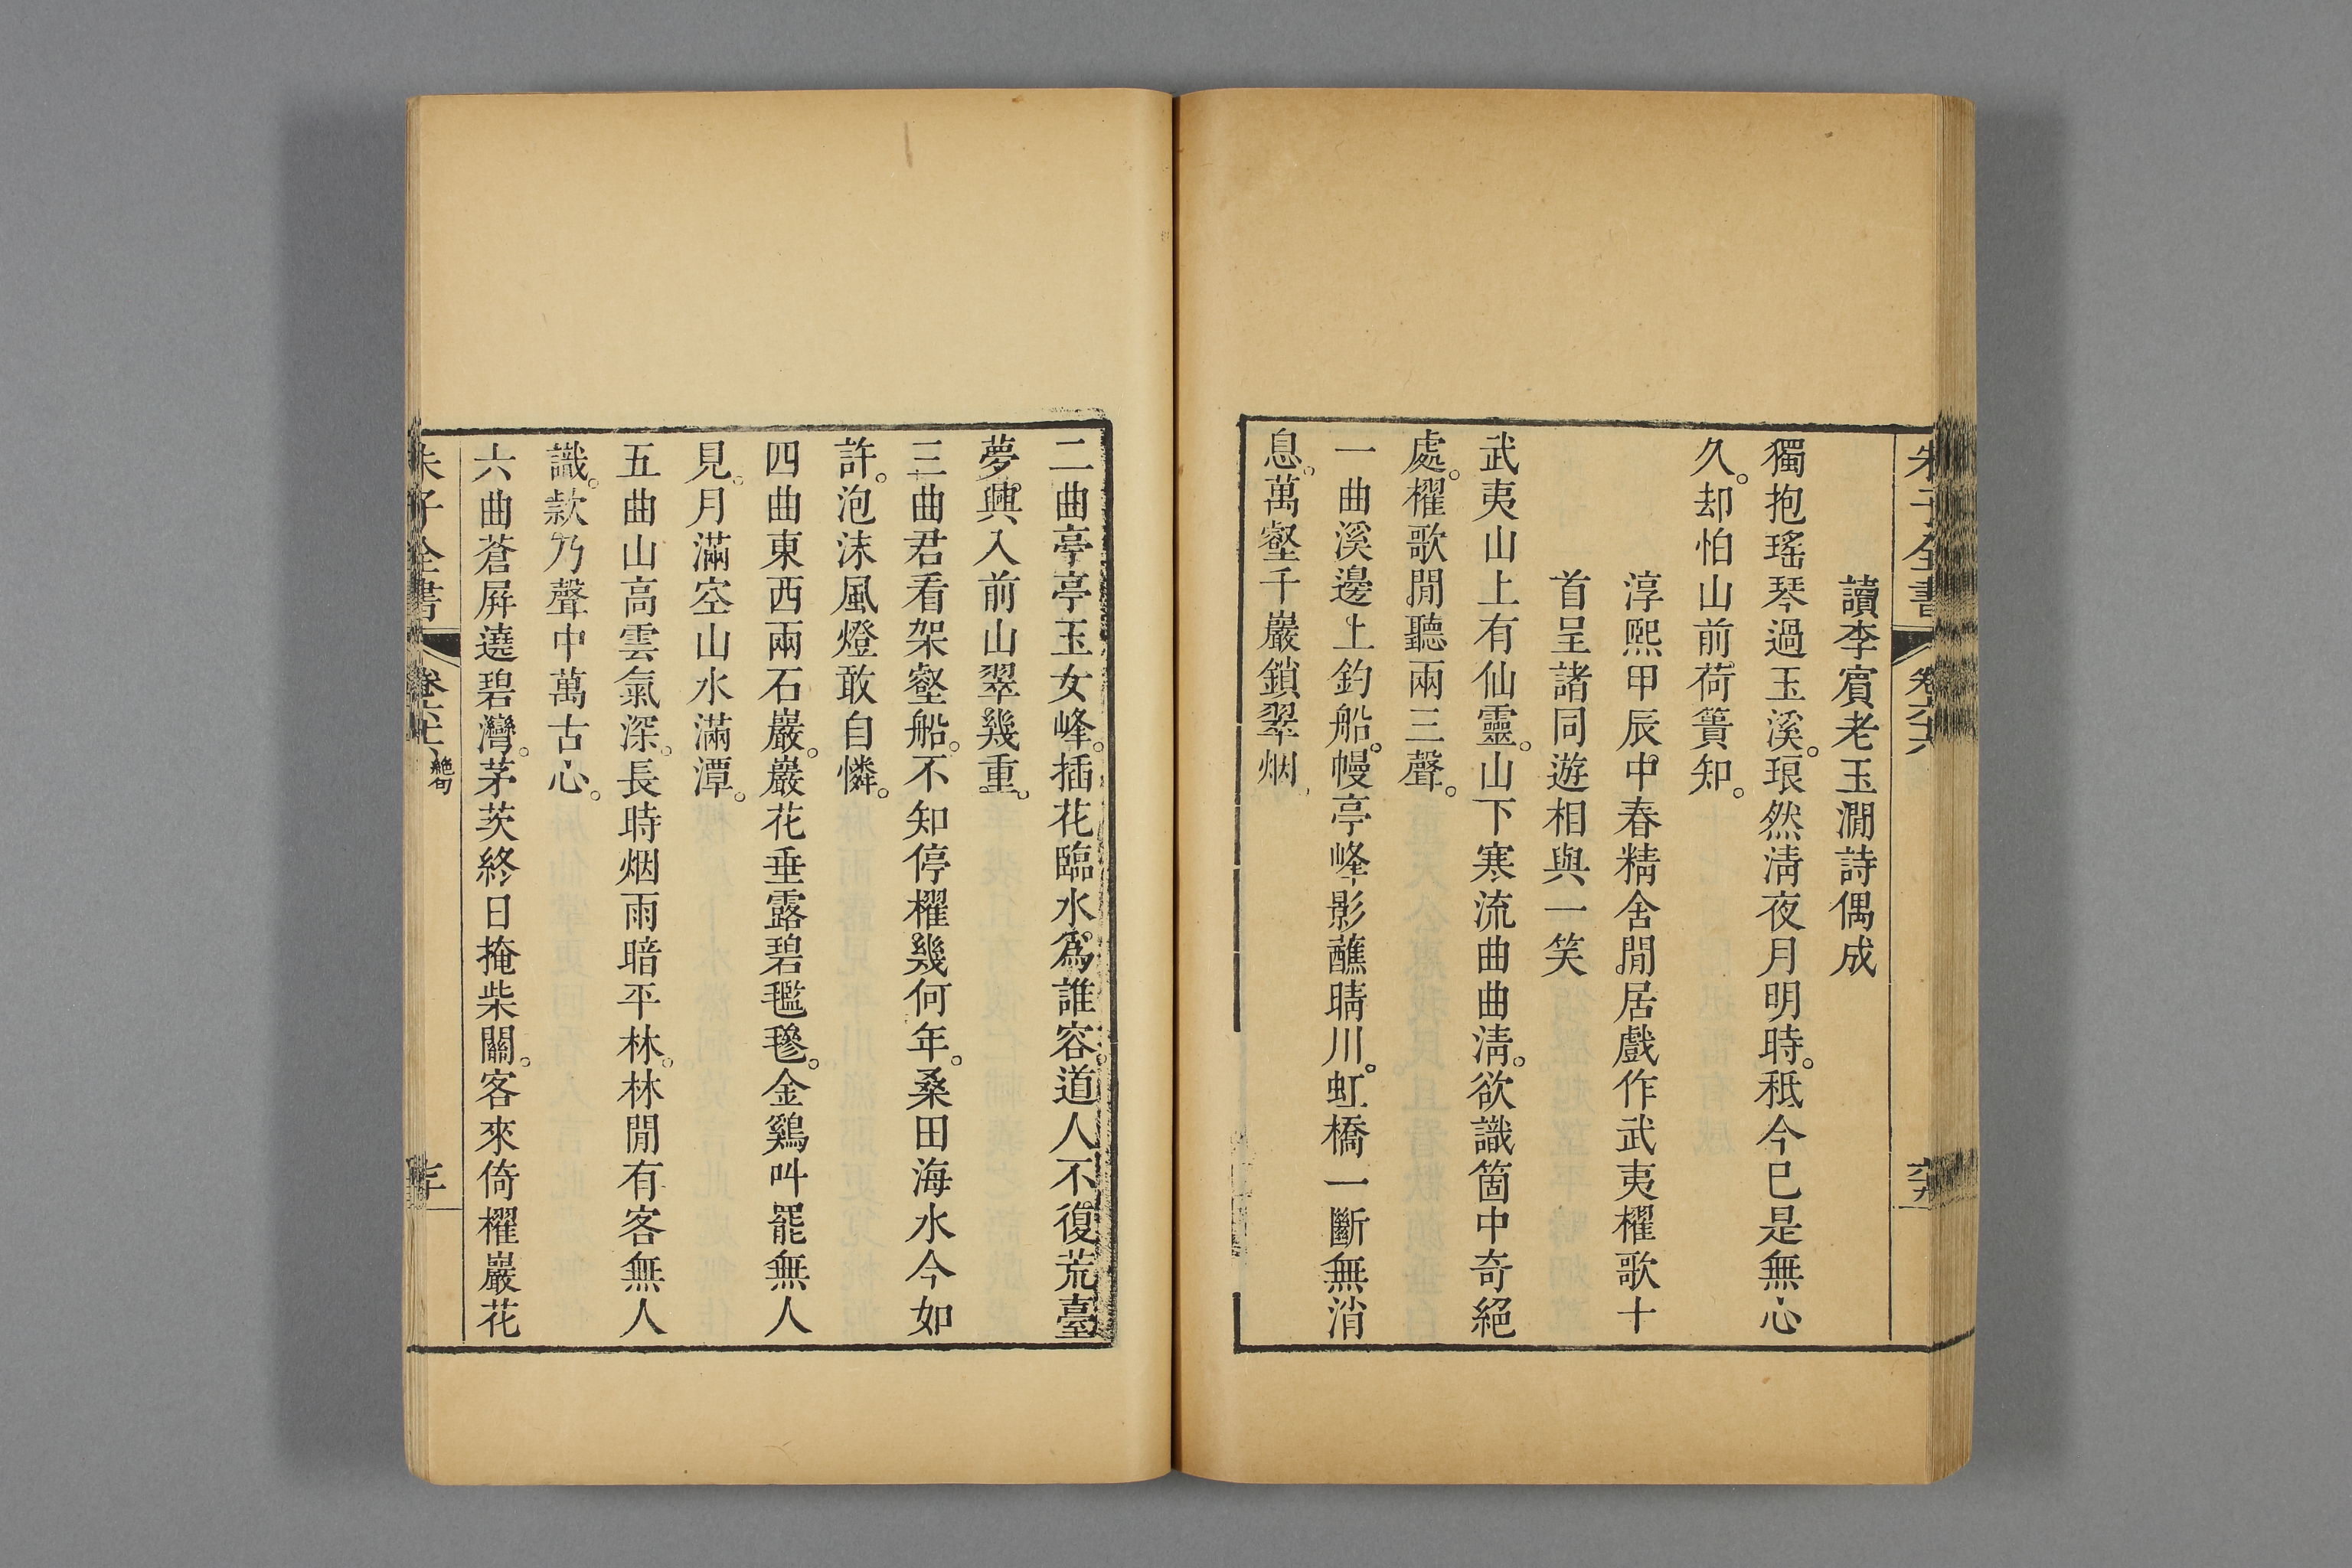 朱子全書 卷六十六
讀李賔老玉澗詩偶成
獨抱瑤琴過玉溪。琅然淸夜月明時。秖今巳是無心
久。却怕山前荷蕢知。
淳熙甲辰中春精舍閒居戲作武夷櫂歌十
首呈諸同遊相與一笑
武夷山上有仙靈。山下寒流曲曲淸。欲識箇中奇絕
處。櫂歌閒聽兩三聲。
一曲溪邊上釣船。幔亭峰影蘸晴川。虹橋一斷無消
息。萬壑千巖鎖翠烟。
二曲亭亭玉女峰。插花臨水爲誰容。道人不復荒臺
夢。興入前山翠幾重。
三曲君看架壑船。不知停櫂幾何年。桑田海水今如
許。泡沫風燈敢自憐。
四曲東西兩石巖。巖花垂露碧㲯毿。金鷄叫罷無人
見。月滿空山水滿潭。
五曲山高雲氣深。長時烟雨暗平林。林閒有客無人
識。欵乃聲中萬古心。
六曲蒼屛遶碧灣。茅茨終日掩柴關。客來倚櫂巖花
朱子全書 絕句